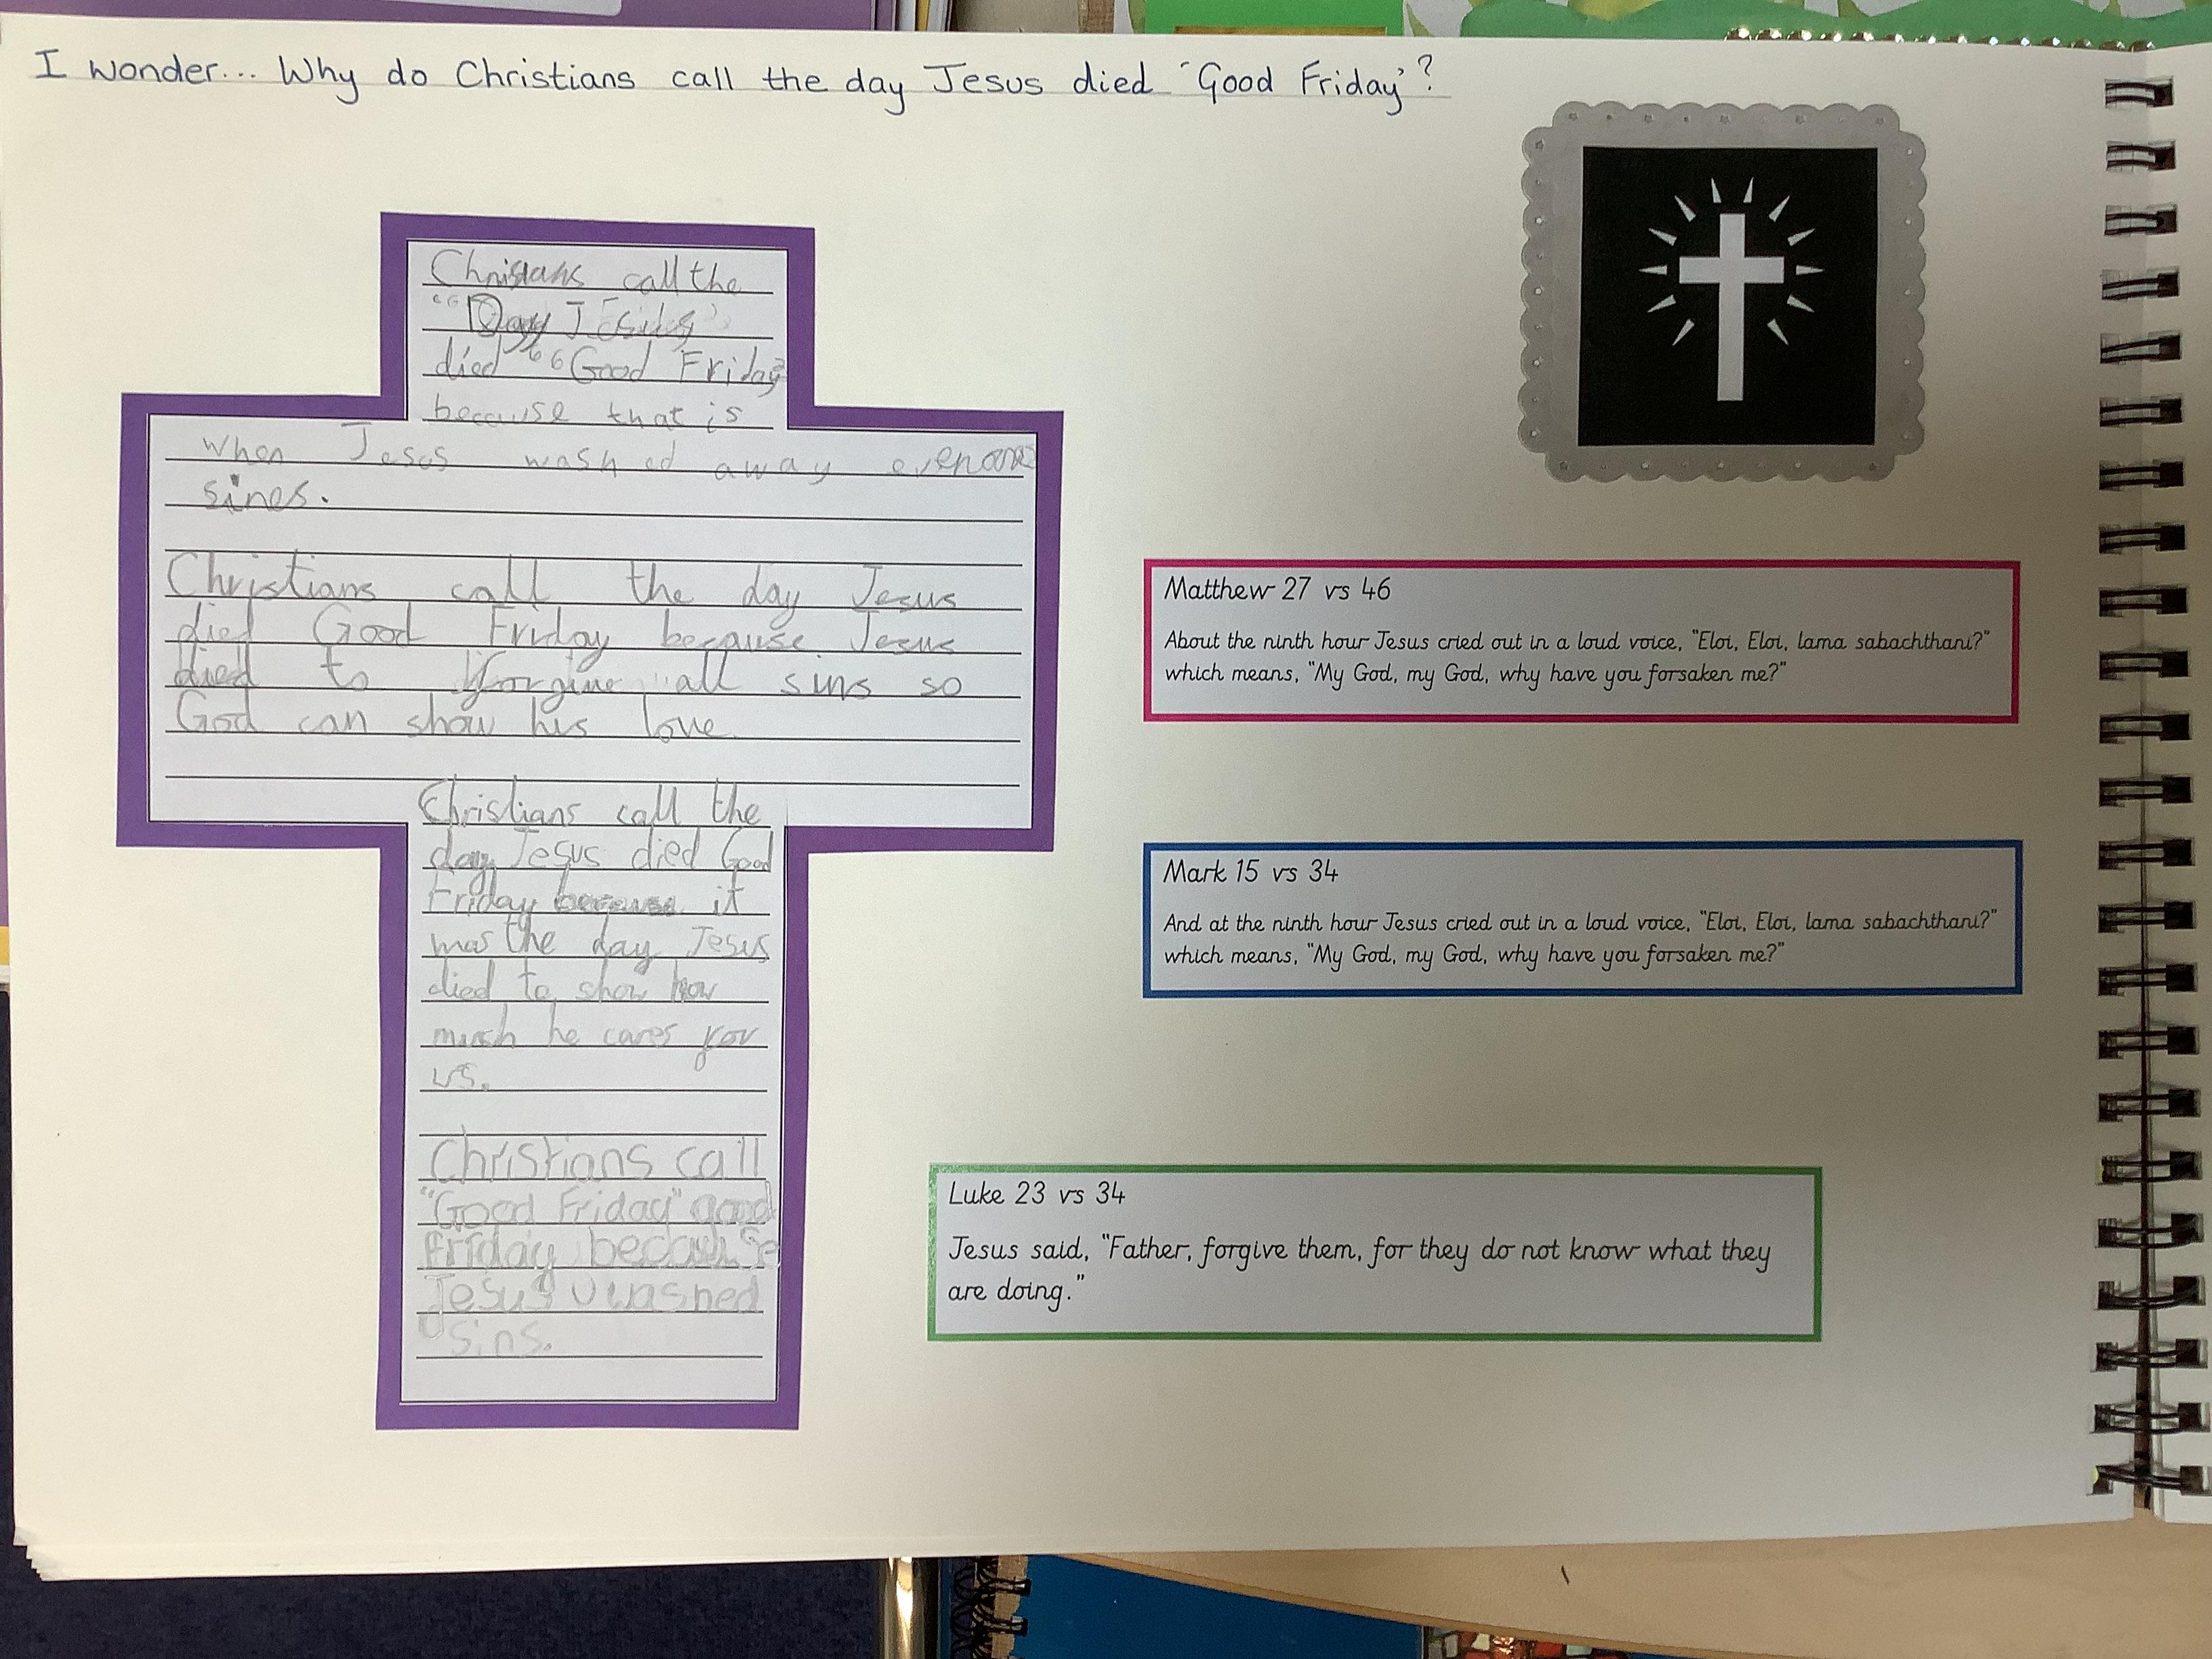 I wonder... Why do Christians call the day Jesus died 'Good Friday'?
Chrisians call the
"Day Jesus"
died "Good Friday
because that is
when Jesus washed away
sines.
Christians call the day Jesus
died Good Friday because Jesus
died to forgive all sins so
God can show his love.
Christians call the
day Jesus died Good
Friday because it
was the day Jesus
died to show how
much he cares for
us.
Christians call
"Good Friday" good
Friday because
Jesus washed
sins.
Matthew 27 vs 46
About the ninth hour Jesus cried out in a loud voice, "Eloi, Eloi, lama sabachthani?"
which means, "My God, my God, why have you forsaken me?"
Mark 15 vs 34
And at the ninth hour Jesus cried out in a loud voice, "Eloi, Eloi, lama sabachthani?"
which means, "My God, my God, why have you forsaken me?"
Luke 23 vs 34
Jesus said, "Father, forgive them, for they do not know what they
are doing."